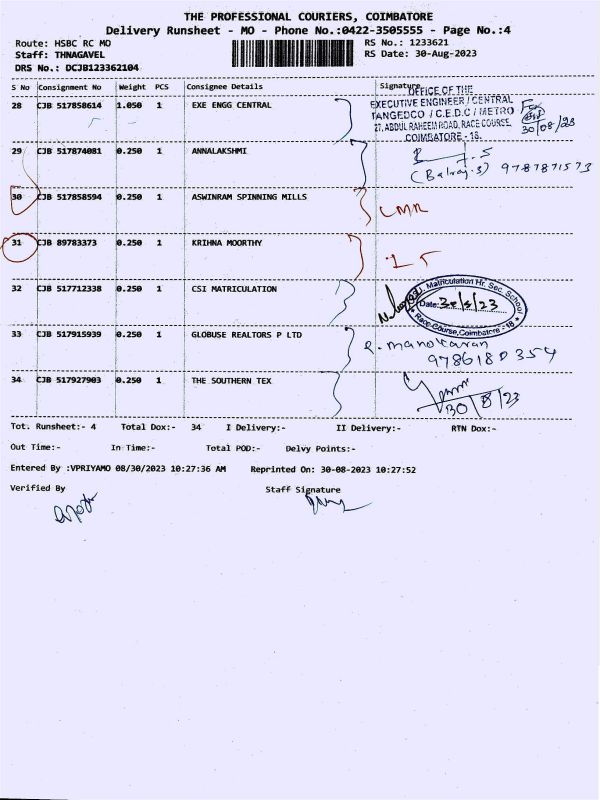 THE PROFESSIONAL COURIERS, COIMBATORE
Delivery Runsheet - MO - Phone No.:0422-3505555 - Page No.:4
Route: HSBC RC MO RS No.: 1233621
Staff: THNAGAVEL RS Date: 30-Aug-2023
DRS No.: DCJB123362104
S No Consignment No Weight PCS Consignee Details Signature
28 CJB 517858614 1.050 1 EXE ENGG CENTRAL
OFFICE OF THE
EXECUTIVE ENGINEER / CENTRAL
TANGEDCO / C.E.D.C / METRO
27, ABDUL RAHEEM ROAD, RACE COURSE,
COIMBATORE - 18.
30/08/23
29 CJB 517874081 0.250 1 ANNALAKSHMI
(Balraj.S) 9787871573
30 CJB 517858594 0.250 1 ASWINRAM SPINNING MILLS
31 CJB 89783373 0.250 1 KRIHNA MOORTHY
32 CJB 517712338 0.250 1 CSI MATRICULATION
Matriculation Hr. Sec. School
Date: 30/8/23
Race Course, Coimbatore - 18
33 CJB 517915939 0.250 1 GLOBUSE REALTORS P LTD
R. manokaran
9786180354
34 CJB 517927903 0.250 1 THE SOUTHERN TEX
30/8/23
Tot. Runsheet:- 4 Total Dox:- 34 I Delivery:- II Delivery:- RTN Dox:-
Out Time:- In Time:- Total POD:- Delvy Points:-
Entered By :VPRIYAMO 08/30/2023 10:27:36 AM Reprinted On: 30-08-2023 10:27:52
Verified By Staff Signature